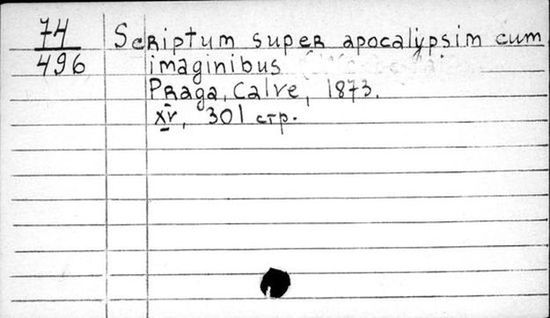 74
496
Scriptum super apocalypsim cum
imaginibus
Praga, Calve, 1873.
XV, 301 стр.